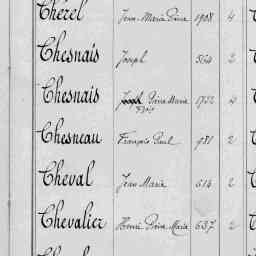 Chérel Jean-Marie Pierre 1908 4
Chesnais Joseph 564 2
Chesnais Pierre Marie 1752 4
Chesneau François Paul 981 2
Cheval Jean Marie 614 2
Chevalier Henri Pierre Marie 637 2